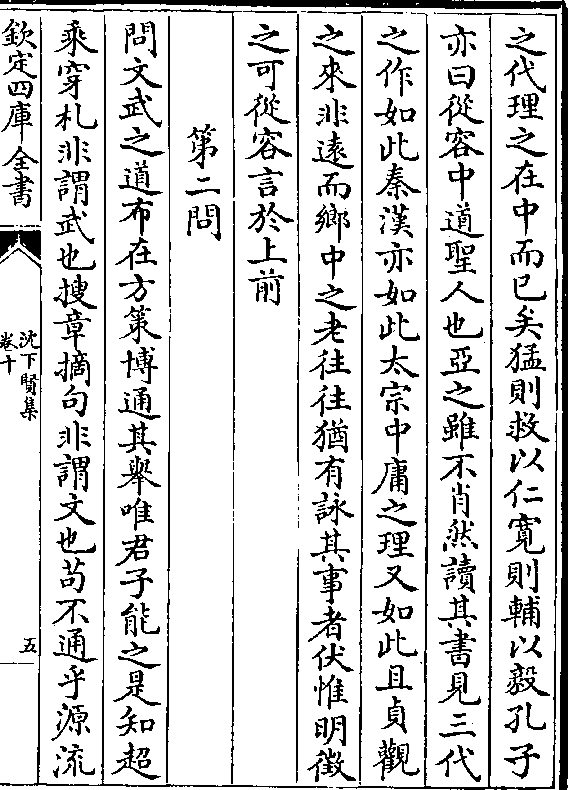 之代理之在中而已矣猛則救以仁寛則輔以毅孔子
亦曰從容中道聖人也亞之雖不肖然讀其書見三代
之作如此秦漢亦如此太宗中庸之理又如此且貞觀
之來非遠而鄉中之老往往猶有詠其事者伏惟明徵
之可從容言於上前
第二問
問文武之道布在方策博通其舉唯君子能之是知超
乘穿札非謂武也搜章摘句非謂文也苟不通乎源流
欽定四庫全書
沈下賢集
卷十
五